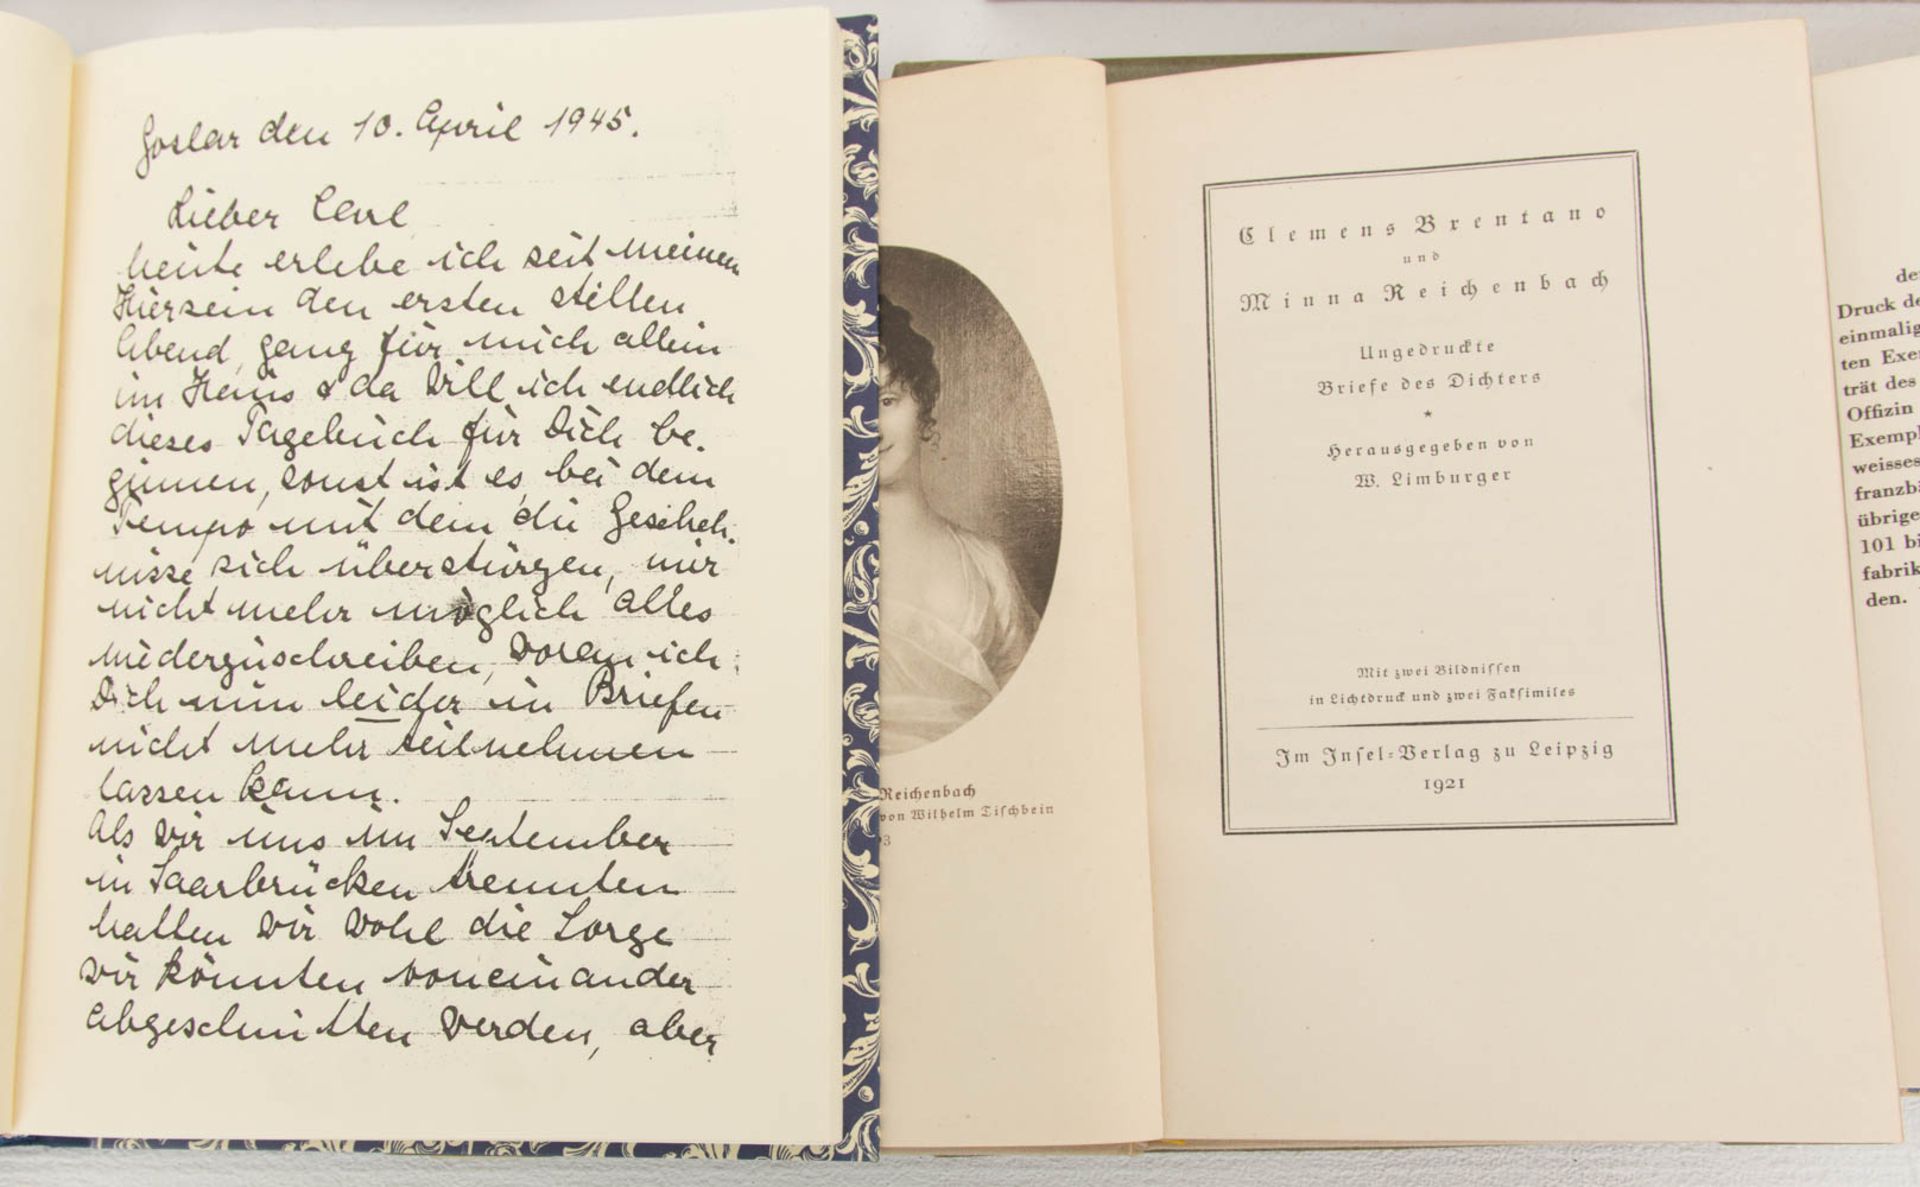 Goslar den 10. April 1945.
Lieber Carl
heute erlebe ich seit meinem
Hiersein den ersten stillen
Abend, ganz für mich allein
im Haus & da will ich endlich
dieses Tagebuch für Dich be-
ginnen, sonst ist es bei dem
Tempo mit dem die Gescheh-
nisse sich überstürzen, mir
nicht mehr möglich alles
niederzuschreiben, woran ich
Dich nun leider in Briefen
nicht mehr teilnehmen
lassen kann.
Als wir uns im September
in Saarbrücken trennten
hatten wir wohl die Sorge
wir könnten voneinander
abgeschnitten werden, aber
Reichenbach
von Wilhelm Tischbein
3
Clemens Brentano
und
Minna Reichenbach
Ungedruckte
Briefe des Dichters
*
Herausgegeben von
W. Limburger
Mit zwei Bildnissen
in Lichtdruck und zwei Faksimiles
Im Insel-Verlag zu Leipzig
1921
de
Druck de
einmalig
ten Exe
trät des
Offizin
Exempl
weisses
franzbä
übrige
101 bi
fabrik
den.